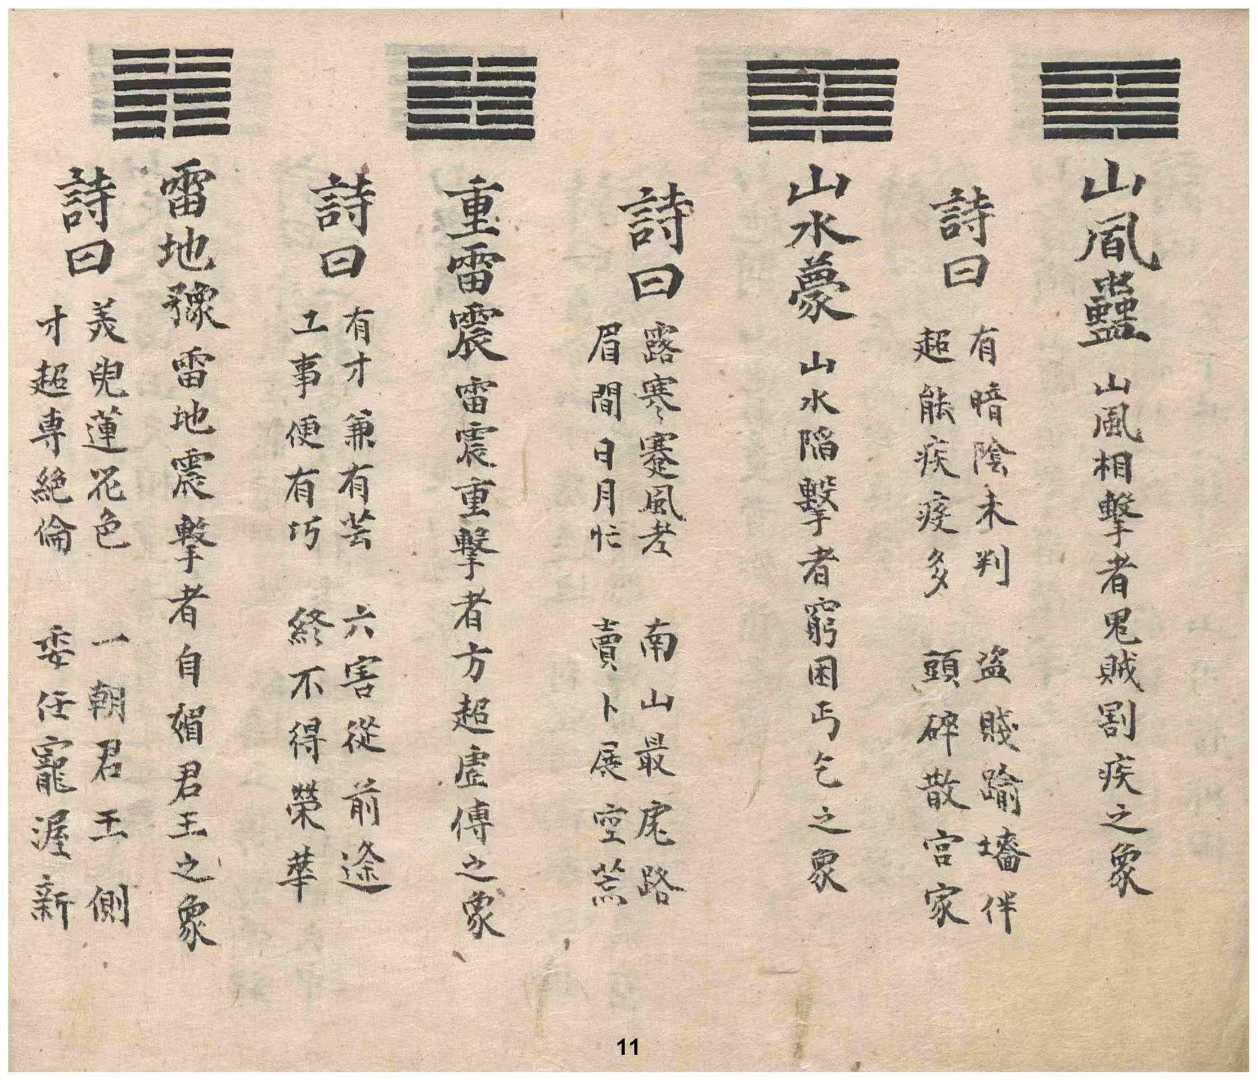 山風蠱 山風相擊者鬼賊割疾之象
詩曰
有暗陰未判 盜賤踰墻伴
超能疾疫多 頭碎散宮家
山水蒙 山水陷擊者窮困丐乞之象
詩曰
露寒蹇風老 南山最尾路
眉間日月忙 賣卜展空
重雷震 雷震重擊者方超虛傳之象
詩曰
有才兼有芸 六害從前途
工事便有巧 終不得榮華
雷地豫 雷地震擊者自媚君王之象
詩曰
美皃蓮花色 一朝君王側
才超専絶倫 委任寵渥新
11